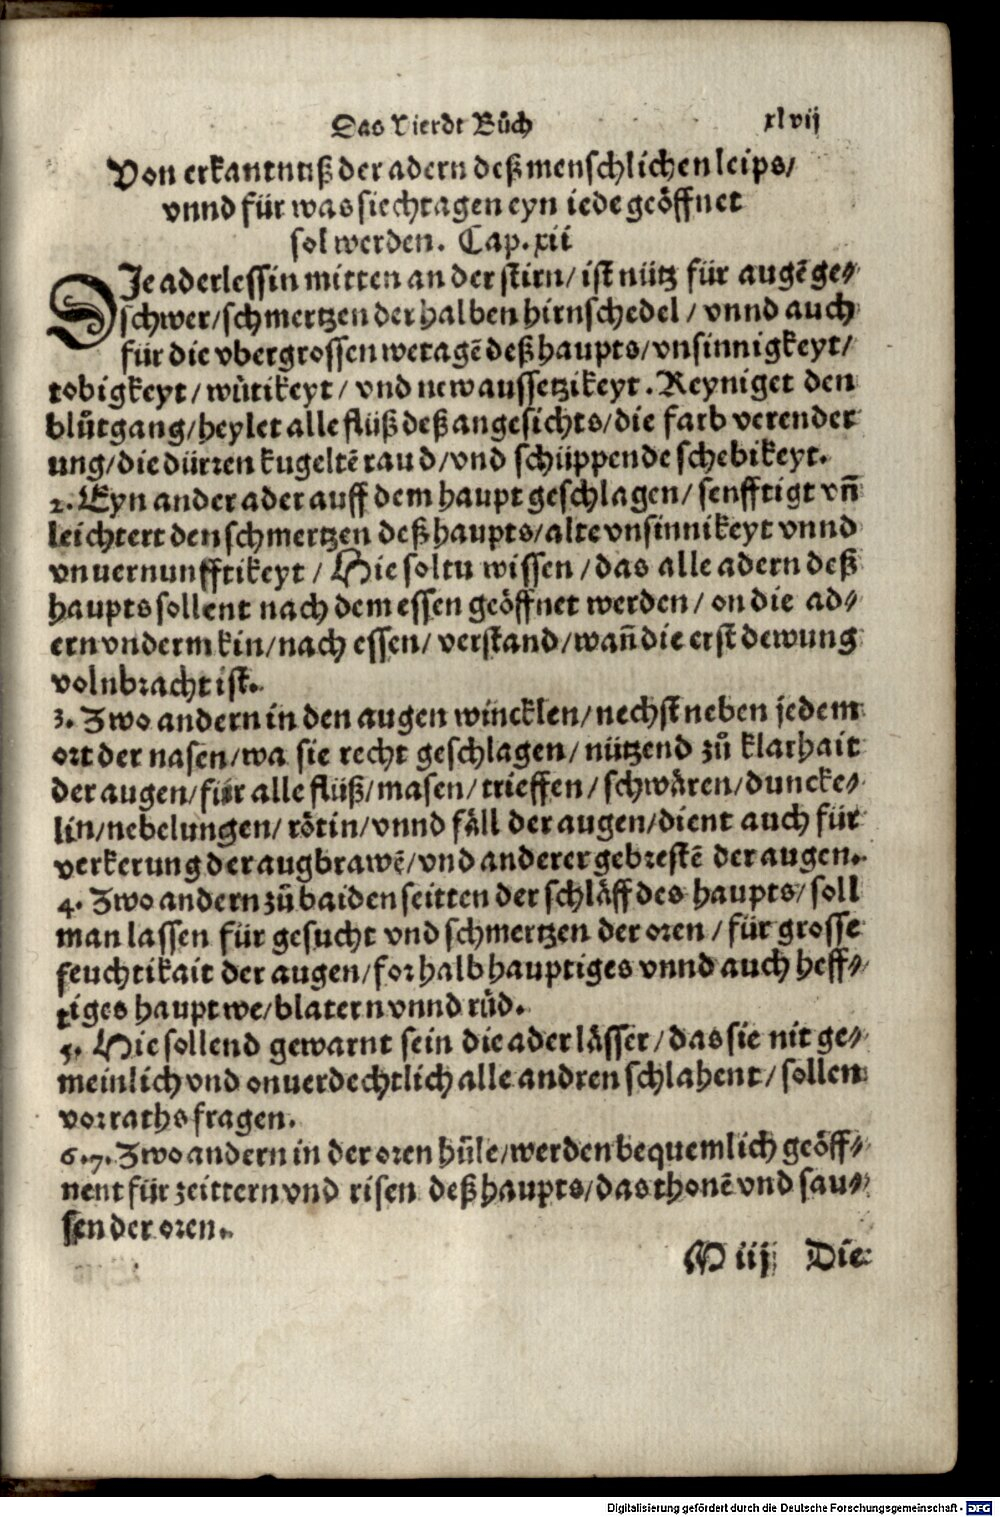 Das Vierdt Bůch xlvij
Von erkantnuß der adern deß menschlichen leips/
vnnd für was siechtagen eyn iede geöffnet
sol werden. Cap. xii
DJe aderlessin mitten an der stirn/ ist nütz für augē ge⸗
schwer/schmertzen der halben hirnschedel / vnnd auch
für die vbergrossen wetagē deß haupts/vnsinnigkeyt/
tobigkeyt/wůtikeyt/ vnd new aussetzikeyt. Reyniget den
blůtgang/heylet alle flüß deß angesichts/die farb verender
ung/die dürren kugeltē raud/vnd schüppende schebikeyt.
2. Eyn ander ader auff dem haupt geschlagen/ senfftigt vñ
leichtert den schmertzen deß haupts/alte vnsinnikeyt vnnd
vnuernunfftikeyt / Hie soltu wissen/das alle adern deß
haupts sollent nach dem essen geöffnet werden/ on die ad⸗
ern vnderm kin/nach essen/ verstand/wañ die erst dewung
volnbracht ist.
3. Zwo andern in den augen wincklen/nechst neben jedem
ort der nasen/wa sie recht geschlagen/nützend zů klarhait
der augen/für alle flüß/masen/trieffen/schwären/duncke⸗
lin/nebelungen/rötin/vnnd fäll der augen/dient auch für
verkerung der augbrawē/vnd anderer gebrestē der augen.
4. Zwo andern zů baiden seitten der schläff des haupts/ soll
man lassen für gesucht vnd schmertzen der oren / für grosse
feuchtikait der augen/for halbhauptiges vnnd auch heff⸗
tiges haupt we/blatern vnnd růd.
5. Hie sollend gewarnt sein die aderlässer/das sie nit ge⸗
meinlich vnd onuerdechtlich alle andren schlahent/sollen
vor raths fragen.
6.7. Zwo andern in der oren hüle/werden bequemlich geöff⸗
nent für zeittern vnd risen deß haupts/das thonē vnd sau⸗
sen der oren.
M iij Die
Digitalisierung gefördert durch die Deutsche Forschungsgemeinschaft - DFG